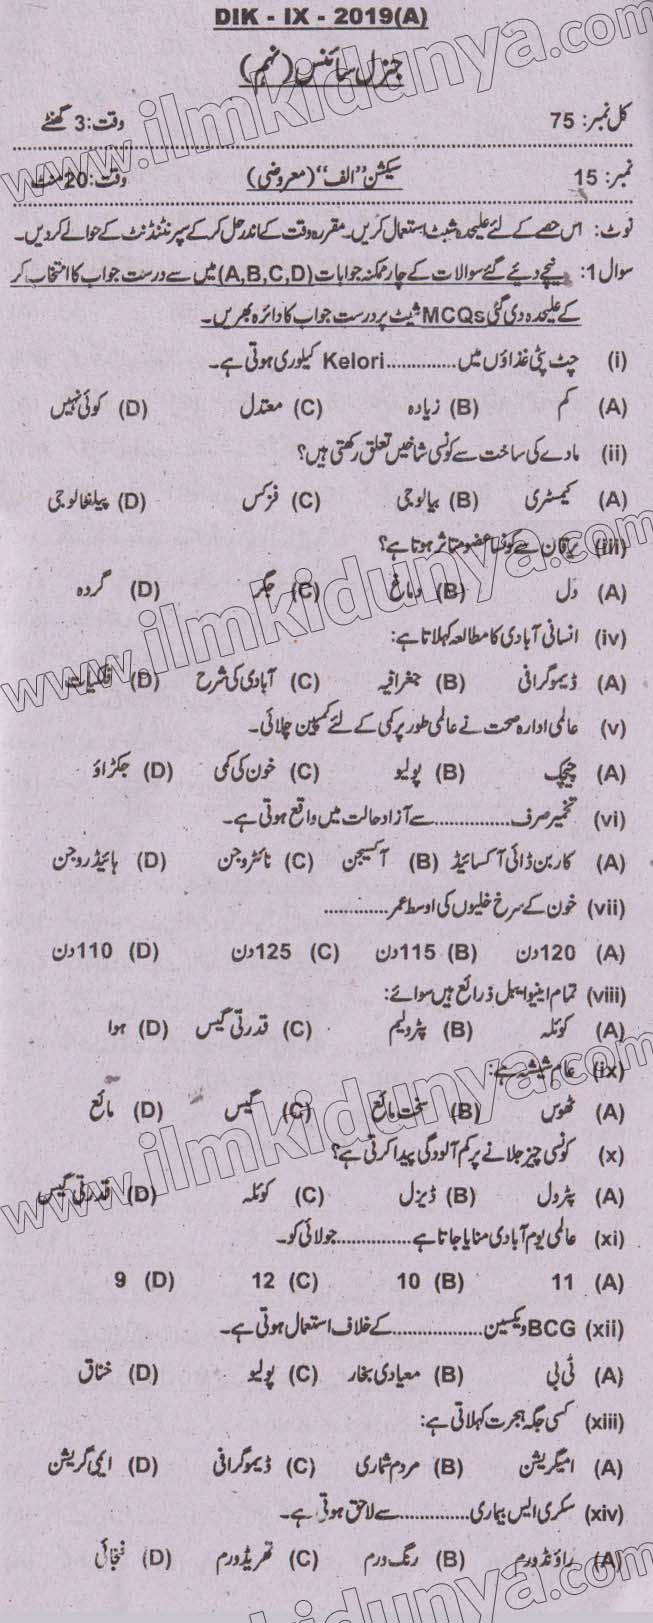 DIK - IX - 2019(A)
جنرل سائنس (نہم)
کل نمبر: 75 وقت: 3 گھنٹے
نمبر: 15 سیکشن "الف" (معروضی) وقت: 20 منٹ
نوٹ: اس حصے کے لئے علیحدہ شیٹ استعمال کریں۔ مقررہ وقت کے اندر حل کرکے سپرنٹنڈنٹ کے حوالے کردیں۔
سوال 1: نیچے دیئے گئے سوالات کے چار ممکنہ جوابات (A,B,C,D) میں سے درست جواب کا انتخاب کر
کے علیحدہ دی گئی MCQs شیٹ پر درست جواب کا دائرہ بھریں۔
(i) چٹ پٹی غذاؤں میں.............Kelori کیلوری ہوتی ہے۔
(A) کم (B) زیادہ (C) معتدل (D) کوئی نہیں
(ii) مادے کی ساخت سے کونسی شاخیں تعلق رکھتی ہیں؟
(A) کیمسٹری (B) بیالوجی (C) فزکس (D) پیلنٹالوجی
(iii) یرقان سے کونسا عضو متاثر ہوتا ہے؟
(A) دل (B) دماغ (C) جگر (D) گردہ
(iv) انسانی آبادی کا مطالعہ کہلاتا ہے:
(A) ڈیموگرافی (B) جغرافیہ (C) آبادی کی شرح (D) فلکیات
(v) عالمی ادارہ صحت نے عالمی طور پر کمی کے لئے کمپین چلائی۔
(A) چیچک (B) پولیو (C) خون کی کمی (D) جکڑاؤ
(vi) تخمیر صرف..............سے آزاد حالت میں واقع ہوتی ہے۔
(A) کاربن ڈائی آکسائیڈ (B) آکسیجن (C) نائٹروجن (D) ہائیڈروجن
(vii) خون کے سرخ خلیوں کی اوسط عمر.............
(A) 120 دن (B) 115 دن (C) 125 دن (D) 110 دن
(viii) تمام اینیوایبل ذرائع ہیں سوائے:
(A) کوئلہ (B) پٹرولیم (C) قدرتی گیس (D) ہوا
(ix) عام شیشہ ہے:
(A) ٹھوس (B) سخت مائع (C) گیس (D) مائع
(x) کونسی چیز جلانے پر کم آلودگی پیدا کرتی ہے؟
(A) پٹرول (B) ڈیزل (C) کوئلہ (D) قدرتی گیس
(xi) عالمی یوم آبادی منایا جاتا ہے..............جولائی کو۔
(A) 11 (B) 10 (C) 12 (D) 9
(xii) BCG ویکسین.................کے خلاف استعمال ہوتی ہے۔
(A) ٹی بی (B) معیادی بخار (C) پولیو (D) خناق
(xiii) کسی جگہ ہجرت کہلاتی ہے:
(A) امیگریشن (B) مردم شماری (C) ڈیموگرافی (D) ایمی گریشن
(xiv) سکری ایس بیماری.............سے لاحق ہوتی ہے۔
(A) راؤنڈ ورم (B) رنگ ورم (C) تھریڈ ورم (D) فنجائی
www.ilmkidunya.com
www.ilmkidunya.com
www.ilmkidunya.com